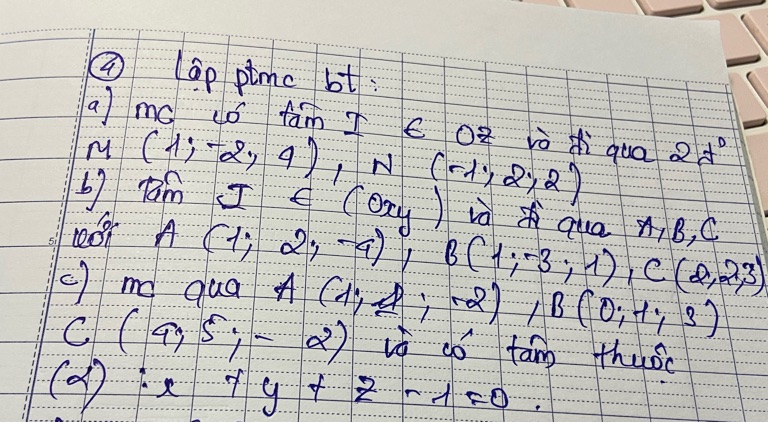 ④ Lập ptmc bt:
a) mc có tâm I ∈ OZ và đi qua 2 đ°
M (1; -2; 4), N (-1; 2; 2)
b) Tâm I ∈ (Oxy) và đi qua A, B, C
với A (1; 2; -4), B(1; -3; 1), C(2,2,3)
c) mc qua A (1; ; -2), B(0; 1; 3)
C (4; 5; - 2) và có tâm thuộc
(α) : x + y + z - 1 = 0.